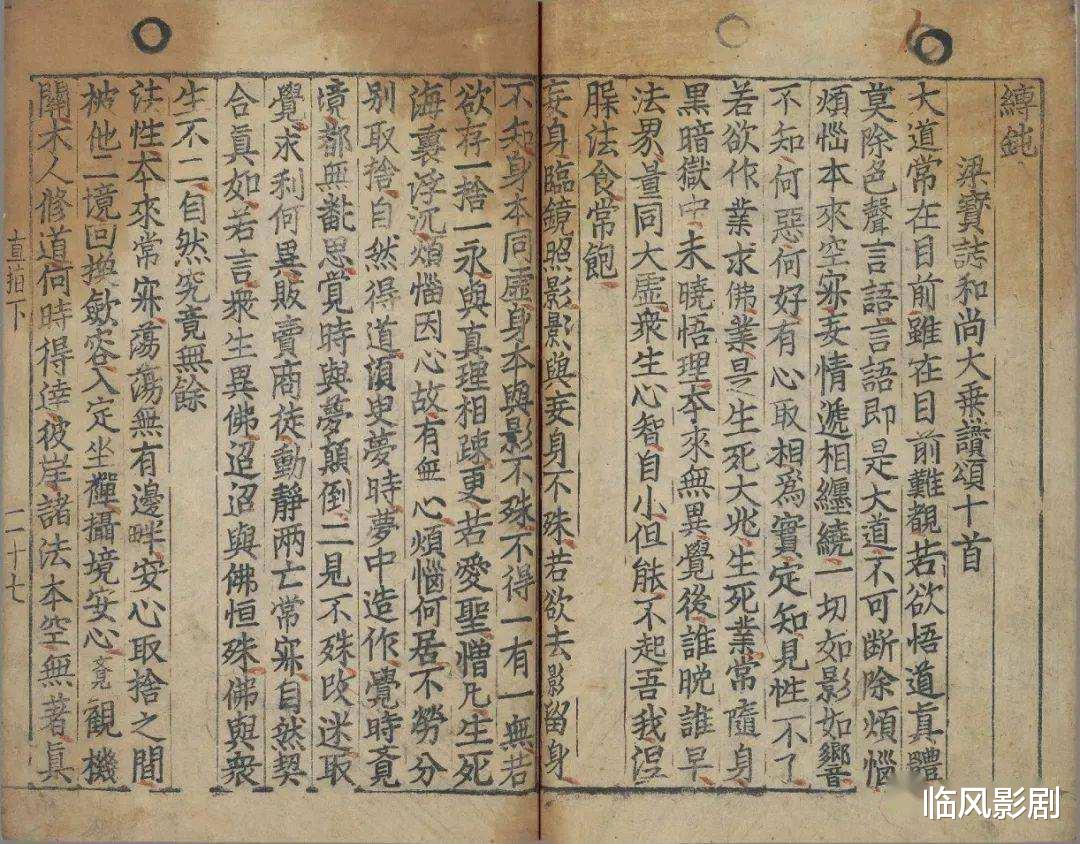 縛鈍
梁寶誌和尚大乘讚頌十首
大道常在目前雖在目前難覩若欲悟道真體
莫除色聲言語言語即是大道不可断除煩惱
煩惱本來空寂妄情遞相纏繞一切如影如響
不知何惡何好有心取相為實定知見性不了
若欲作業求佛業是生死大兆生死業常隨身
黑暗獄中未曉悟理夲來無異覺後誰晚誰早
法界量同大虛衆生心智自小但能不起吾我涅
脵法食常飽
妄身臨鏡照影影與妄身不殊若欲去影留身
不知身本同虛身本與影不殊不得一有一無若
欲存一捨一永與真理相疎更若愛聖憎凡生死
海裏浮沉煩惱因心故有無心煩惱何居不勞分
别取捨自然得道湏臾夢時夢中造作覺時覺
境都無飜思覚時與夢顛倒二見不殊改迷取
覺求利何異販賣商徒動靜兩亡常寂自然契
合真如若言衆生異佛迢迢與佛恒殊佛與衆
生不二自然究竟無餘
法性夲來常寂蕩蕩無有邊畔安心取捨之間
被他二境回換斂容入定坐禪攝境安心覺觀機
關木人修道何時得達彼岸諸法本空無著真
直指下
二十七
临风影剧